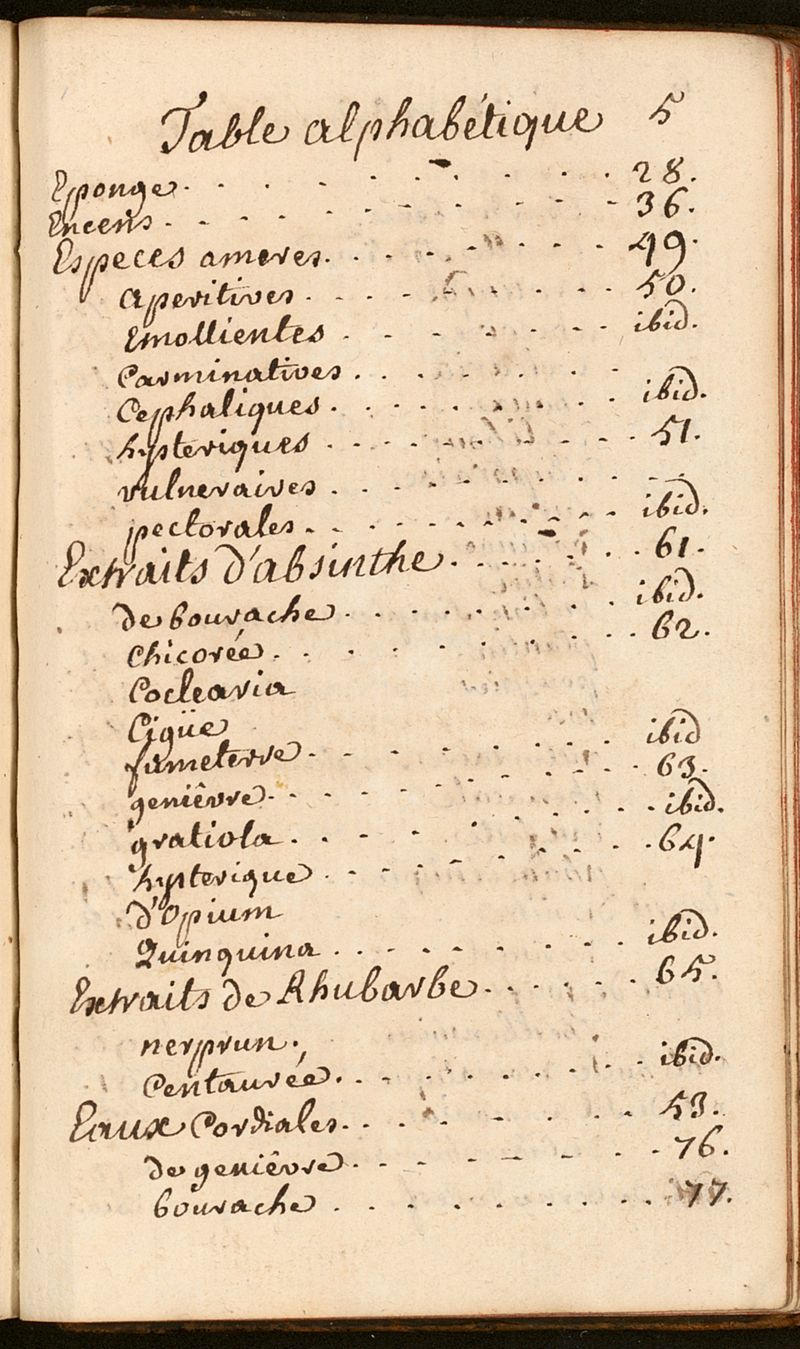 Table alphabétique 5
Eponge. . . . . . . . 28.
Encens . . . . . . . . 36.
Especes ameres. . . . . . . . 49.
aperitives . . . . . . . . 50.
Emollientes . . . . . . . . ibid.
Carminatives . . . . . . . .
Cephaliques . . . . . . . . ibid.
hysteriques . . . . . . . . 51.
vulneraires . . . . . . . .
pectorales . . . . . . . . ibid.
Extraits d'absinthe . . . . . . 61.
de bourache . . . . . . . . ibid.
Chicorée . . . . . . . . 62.
Coclearia
Cigüe
fumeterre . . . . . . . . ibid
genièvre . . . . . . . . 63.
gratiola . . . . . . . . ibid.
hysterique . . . . . . . . 64.
d'Opium
Quinquina . . . . . . . . ibid.
Extraits de Rhubarbe . . . . . 65.
nerprun.
Centaurée . . . . . . . . ibid.
Eaux Cordiales . . . . . . . . 53.
de genièvre . . . . . . . . 76.
bourache . . . . . . . . 77.